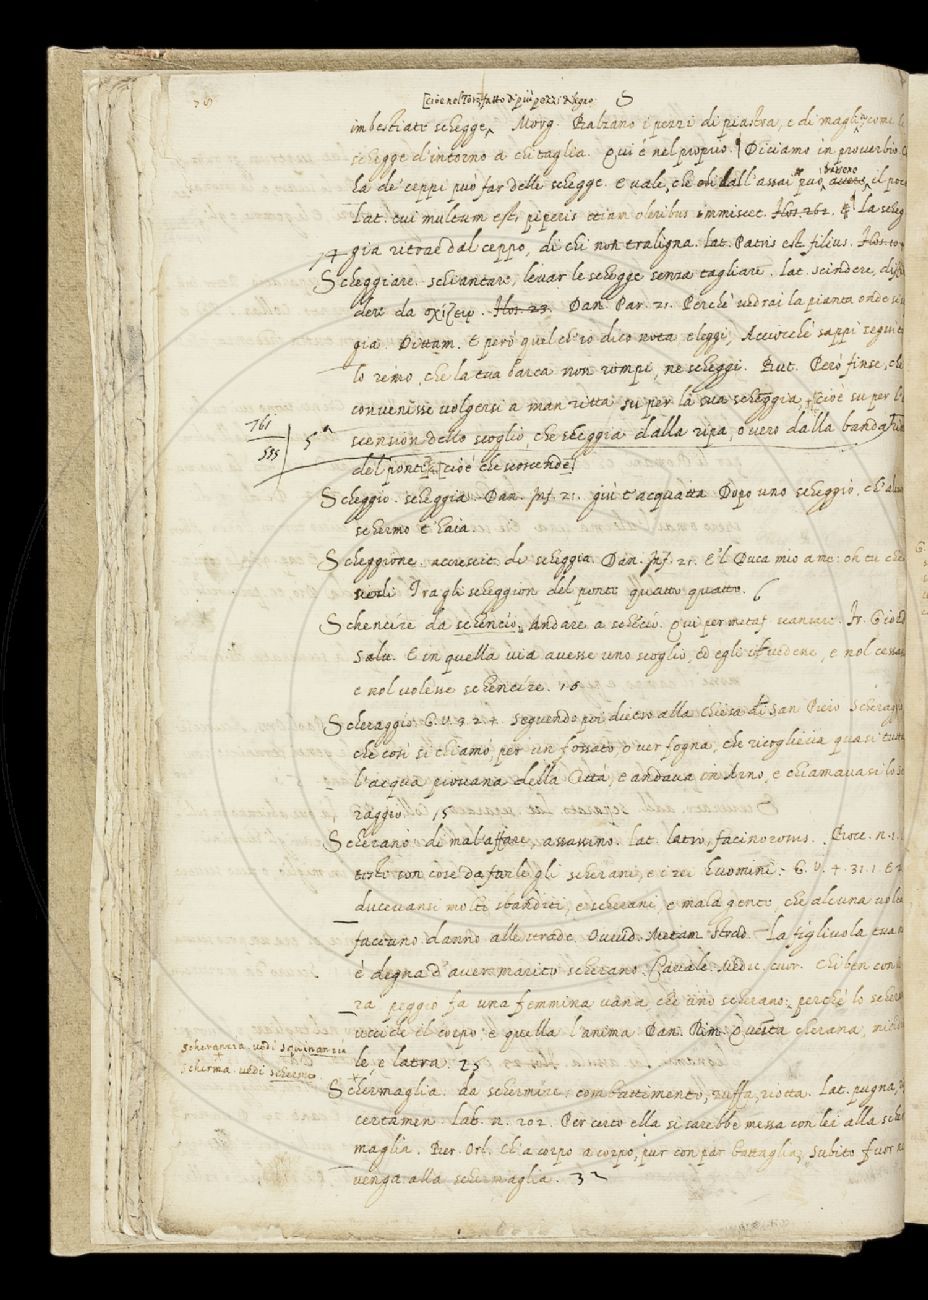 [cioè nel Toro fatto di più pezzi di legno S
imbestiate schegge. Morg. Balzano i pezzi di piastra, e di maglia come le
schegge d'intorno a chi taglia. Qui è nel propio. Diciamo in proverbio
la de' ceppi può far delle schegge. e vale, che dall'assai può avere il poco
Lat. cui multum est piperis etiam oleribus immiscet. La scheg
gia ritrae dal ceppo, di chi non traligna. lat. Patris est filius.
Scheggiare. schiantare, levar le schegge senza tagliare. lat. scindere,
dere da σχίζειν. Dan. Par. 21. Perchè vedrai la pianta onde si
gia. Dittam. E però quel ch'io dico nota e leggi, Acciocchè sappi
lo remo, che la tua barca non rompi, ne scheggi. But. Però finse, che
convenisse volgersi a man ritta su per la sua scheggia, cioè su per l'a
761
595
5
scension dello scoglio, che scheggia dalla ripa, o vero dalla banda
del ponte [cioè che scoscende]
Scheggio. scheggia. Dan. Inf. 21. giù t'acquatta Dopo uno scheggio, ch' alcun
schermo t' haia
Scheggione. accrescit. di scheggia. Dan. Inf. 21. E 'l Duca mio a me: oh tu che
siedi Tra gli scheggion del ponte quatto quatto. 6
Schencire da schencio. Andare a schencio. Qui per metaf. scansare. Fr. Giord.
Salv. E in quella via avesse uno scoglio, ed egli il vedesse, e nol cessasse
e nol volesse schencire. 10
Scheraggio. G. V. 3. 2. 4. Seguendo poi dietro alla chiesa di San Piero Scheraggio
che così si chiamò, per un fossato, o ver fogna, che ricoglieva quasi tutta
l'acqua piovana della Città, e andava in Arno, e chiamavasi lo Sche
raggio. 15
Scherano. di mal affare, assassino. lat. latro, facinorosus. Bocc. n. 1.
teste son cose da farle gli scherani, e i rei huomini. G. V. 4. 31. 1. E
ducevansi molti sbanditi, e scherani, e mala gente, che alcuna volta
facieno danno alle strade. Ovvid. Metam. Strad. La figliuola tua
è degna d' aver marito scherano. Cavalc. Medic. cuor. Chi ben
ra peggio fa una femmina vana, che uno scherano: perchè lo scherano
uccide il corpo; e quella l'anima. Dan. Rim. Questa cherana,
scheranzia. vedi squinanzia
scherma. vedi schermo
le, e latra. 25
Schermaglia. da schermire; combattimento, zuffa, riotta. Lat. pugna,
certamen. Lab. n. 202. Per certo ella si sarebbe messa con lei alla scher
maglia. Ber. Orl. Ch'a corpo a corpo, pur con par battaglia, Subito fuor
venga alla schermaglia. 32